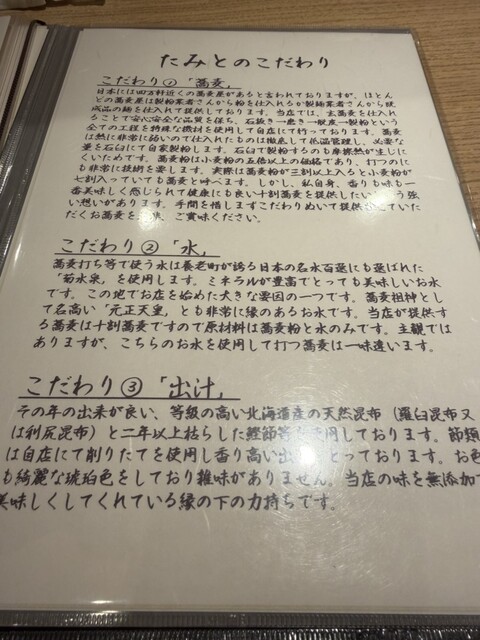 たみとのこだわり
こだわり①「蕎麦」
日本には四万軒近くの蕎麦屋があると言われておりますが、ほとん
どの蕎麦屋は製粉業者さんから粉を仕入れるか製麺業者さんから既
成品の麺を仕入れて提供しております。当店では、玄蕎麦を仕入れ
ることで安心安全な品質を保ち、石抜き→磨き→脱皮→製粉という
全ての工程を特殊な機材を使用して自店にて行っております。蕎麦
は熱に非常に弱いので仕入れたものは徹底して低温管理し、必要な
量を石臼にて自家製粉します。石臼で製粉するのも摩擦熱が生じに
くいためです。蕎麦粉は小麦粉の五倍以上の価格であり、打つのに
も非常に技術を要します。実際は蕎麦粉が三割以上入ると小麦粉が
七割入っていても蕎麦と呼べます。しかし、私自身、香りも味も一
番美味しく感じられて健康にも良い十割蕎麦を提供したいという強
い想いがあります。手間を惜しまずこだわりぬいて提供させていた
だくお蕎麦を、ご賞味ください。
こだわり②「水」
蕎麦打ち等で使う水は養老町が誇る日本の名水百選にも選ばれた
「菊水泉」を使用します。ミネラルが豊富でとっても美味しいお水
です。この地でお店を始めた大きな要因の一つです。蕎麦祖神とし
て名高い「元正天皇」とも非常に縁のあるお水です。当店が提供す
る蕎麦は十割蕎麦ですので原材料は蕎麦粉と水のみです。主観では
ありますが、こちらのお水を使用して打つ蕎麦は一味違います。
こだわり③「出汁」
その年の出来が良い、等級の高い北海道産の天然昆布（羅臼昆布又
は利尻昆布）と二年以上枯らした鰹節等を使用しております。節類
は自店にて削りたてを使用し香り高い出汁をとっております。お色
も綺麗な琥珀色をしており雑味がありません。当店の味を無添加で
美味しくしてくれている縁の下の力持ちです。